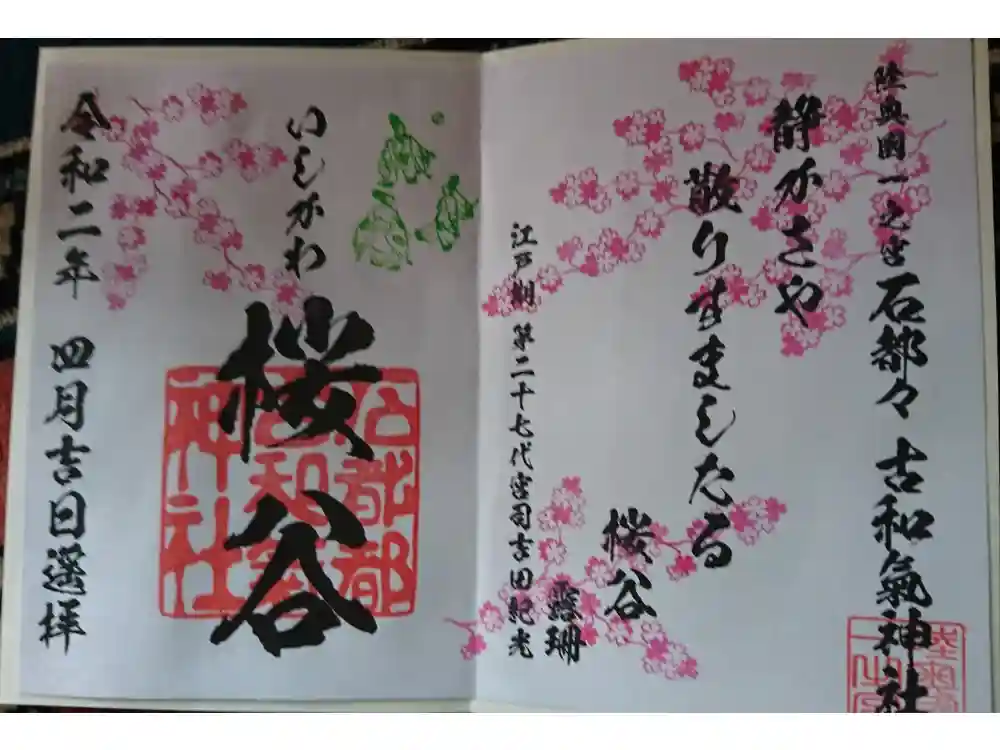 陸奥国一之宮 石都々古和氣神社
静かさや
散りすましたる
桜谷
露珊
江戸期 第二十七代宮司吉田紀光
陸奥國
一之宮
いしかわ
桜谷
石都都
古和氣
神社
令和二年 四月吉日遥拝